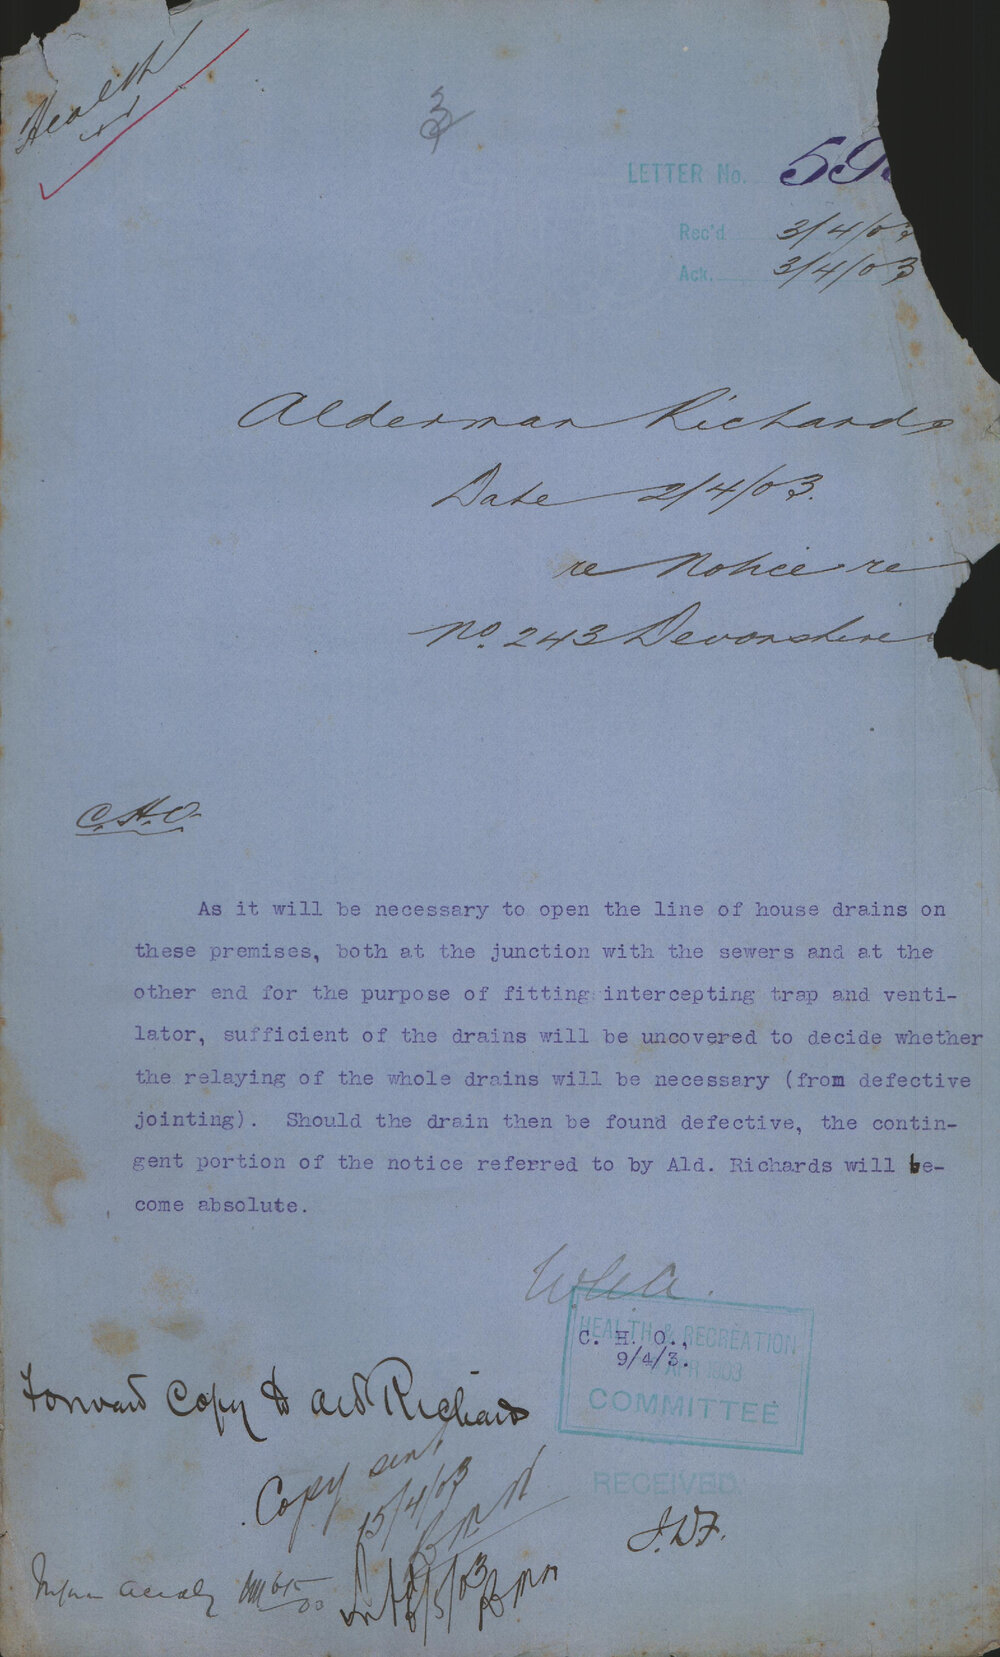 Health
3
LETTER No. 59
Rec'd 3/4/03
Ack. 3/4/03
Alderman Richards
Date 2/4/03.
re Notice re
No. 243 Devonshire
C.H.O.
As it will be necessary to open the line of house drains on
these premises, both at the junction with the sewers and at the
other end for the purpose of fitting intercepting trap and venti-
lator, sufficient of the drains will be uncovered to decide whether
the relaying of the whole drains will be necessary (from defective
jointing). Should the drain then be found defective, the contin-
gent portion of the notice referred to by Ald. Richards will be-
come absolute.
HEALTH & RECREATION
C. H. O.,
9/4/3.
APR 1903
COMMITTEE
Forward Copy to Ald Richards
Copy sent
15/4/03
RECEIVED.